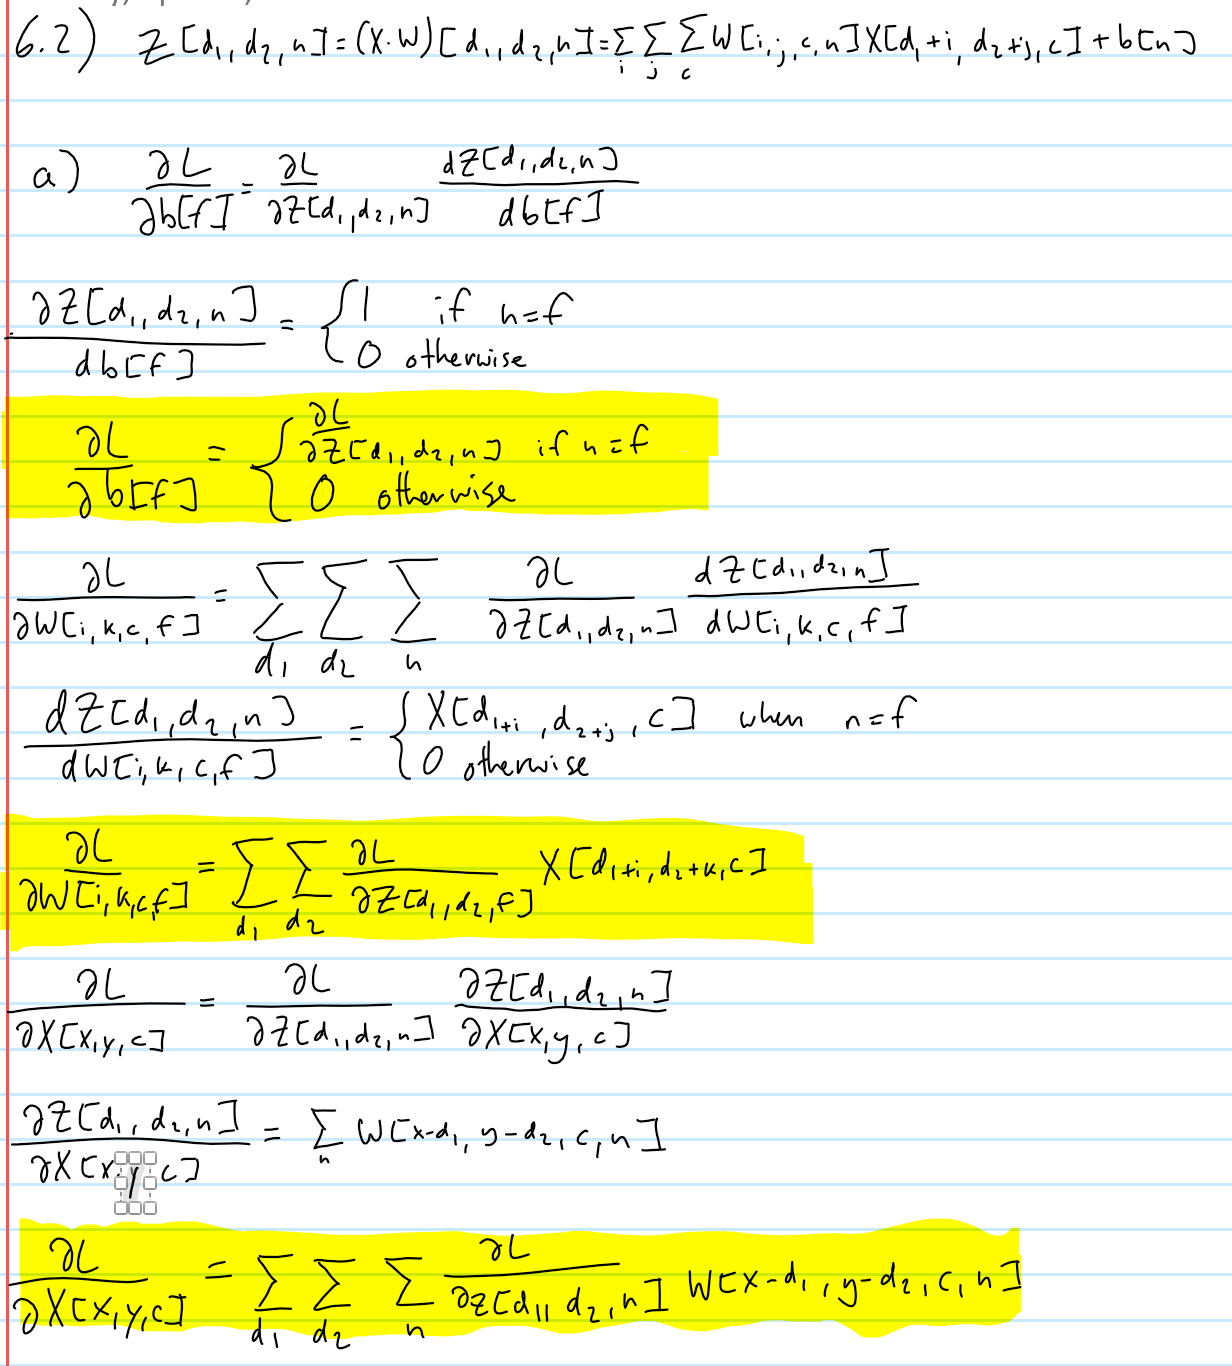 6.2) Z[d₁, d₂, n] = (X·W)[d₁, d₂, n] = Σ_i Σ_j Σ_c W[i, j, c, n] X[d₁+i, d₂+j, c] + b[n]
a) ∂L/∂b[f] = ∂L/∂Z[d₁, d₂, n] dZ[d₁, d₂, n]/db[f]
∂Z[d₁, d₂, n]/db[f] = { 1 if n=f
0 otherwise
∂L/∂b[f] = { ∂L/∂Z[d₁, d₂, n] if n=f
0 otherwise
∂L/∂W[i, k, c, f] = Σ_d₁ Σ_d₂ Σ_n ∂L/∂Z[d₁, d₂, n] dZ[d₁, d₂, n]/dW[i, k, c, f]
dZ[d₁, d₂, n]/dW[i, k, c, f] = { X[d₁+i, d₂+j, c] when n=f
0 otherwise
∂L/∂W[i, k, c, f] = Σ_d₁ Σ_d₂ ∂L/∂Z[d₁, d₂, f] X[d₁+i, d₂+k, c]
∂L/∂X[x, y, c] = ∂L/∂Z[d₁, d₂, n] ∂Z[d₁, d₂, n]/∂X[x, y, c]
∂Z[d₁, d₂, n]/∂X[x, y, c] = Σ_n W[x-d₁, y-d₂, c, n]
∂L/∂X[x, y, c] = Σ_d₁ Σ_d₂ Σ_n ∂L/∂Z[d₁, d₂, n] W[x-d₁, y-d₂, c, n]